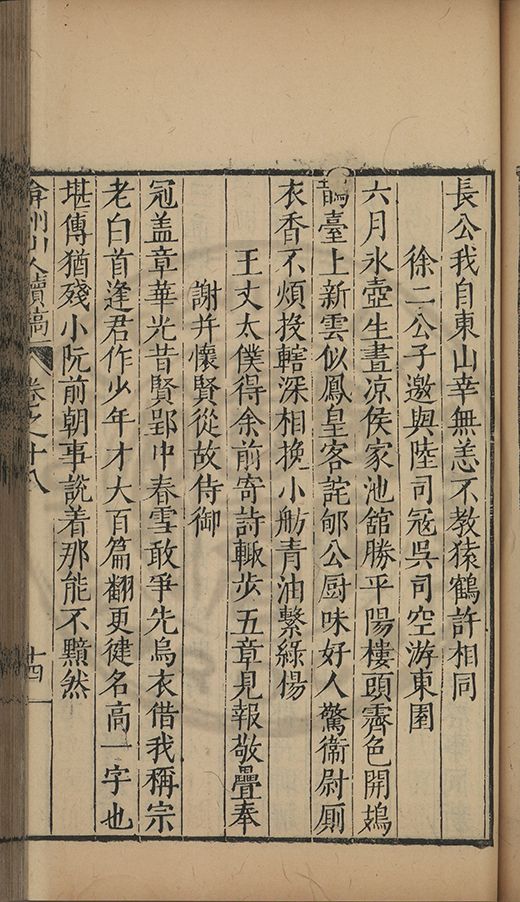 長公我自東山幸無恙不教猿鶴許相同
徐二公子邀與陸司冦吳司空游東園
六月氷壺生晝凉侯家池舘勝平陽樓頭霽色開鳷
鵲臺上新雲似鳳皇客詫郇公厨味好人驚衞尉厠
衣香不煩投轄深相挽小舫青油繫綠楊
王丈太僕得余前寄詩輙步五章見報敬疊奉
謝并懷賢從故侍御
冠盖章華光昔賢郢中春雪敢爭先烏衣借我稱宗
老白首逢君作少年才大百篇翻更徤名高一字也
堪傳猶殘小阮前朝事說着那能不黯然
弇州山人續稿 卷之十八 十四